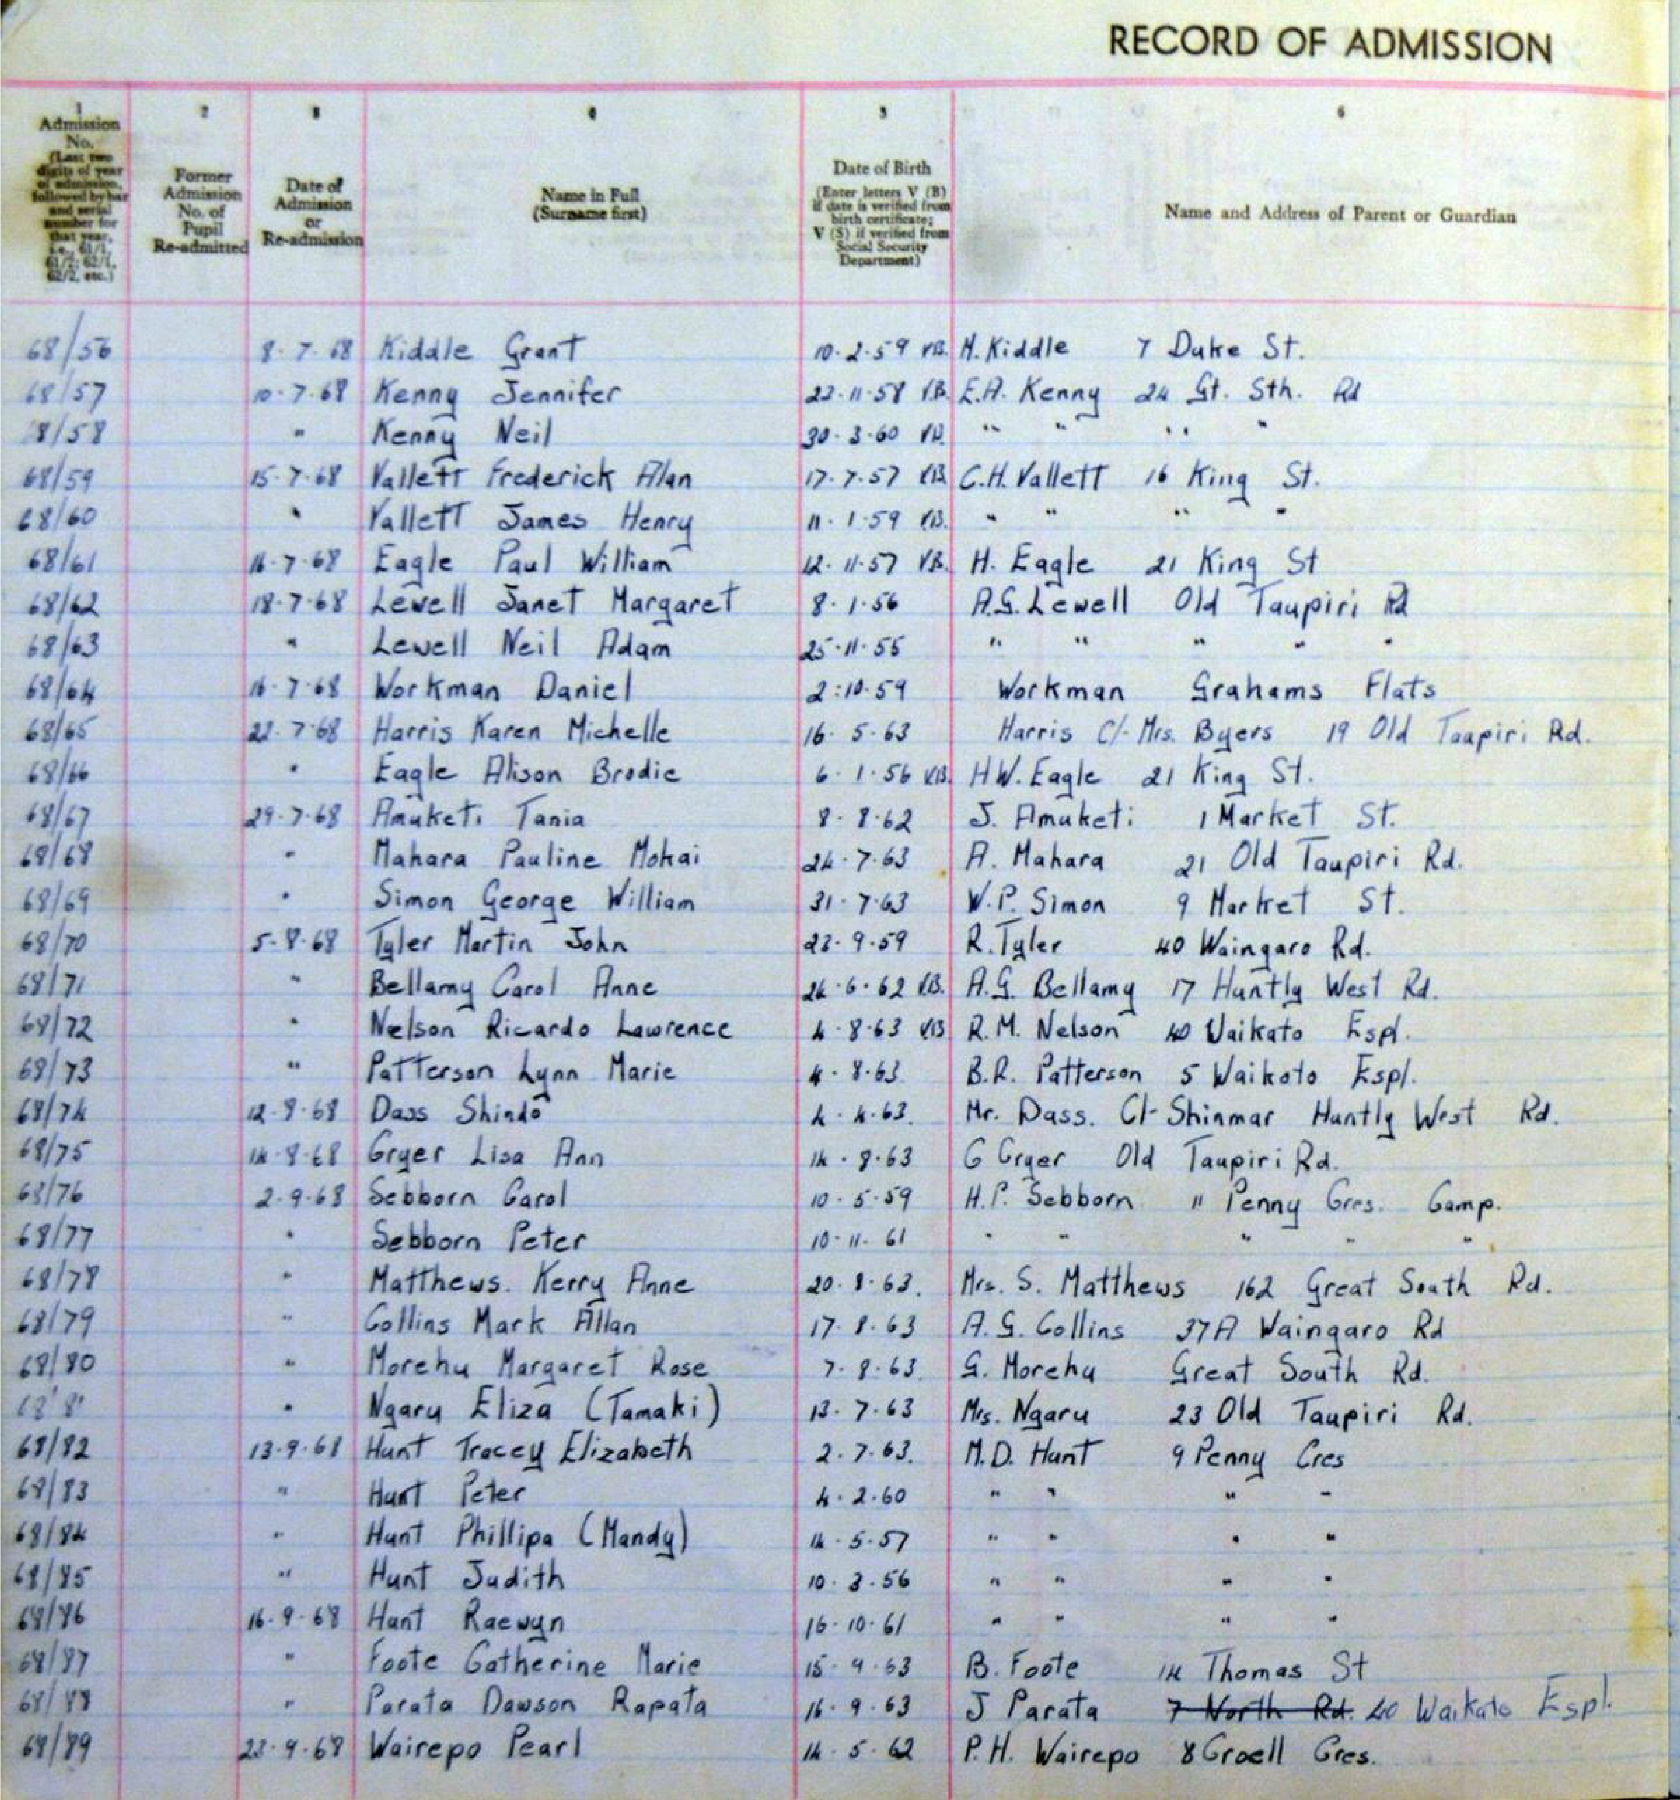 RECORD OF ADMISSION
1 2 3 4 5 6
Admission No. (Last two digits of year of admission, followed by bar and serial number for that year, i.e., 61/1, 61/2; 62/1, 62/2, etc.)
Former Admission No. of Pupil Re-admitted
Date of Admission or Re-admission
Name in Full (Surname first)
Date of Birth (Enter letters V (B) if date is verified from birth certificate; V (S) if verified from Social Security Department)
Name and Address of Parent or Guardian
68/56 8-7-68 Kiddle Grant 10-2-59 VB. H. Kiddle 7 Duke St.
68/57 10-7-68 Kenny Jennifer 22-11-58 VB. E.A. Kenny 24 Gt. Sth. Rd
68/58 " Kenny Neil 30-3-60 VB. " " " "
68/59 15-7-68 Vallett Frederick Alan 17-7-57 VB C.H. Vallett 16 King St.
68/60 " Vallett James Henry 11-1-59 VB. " " " "
68/61 16-7-68 Eagle Paul William 12-11-57 VB. H. Eagle 21 King St
68/62 18-7-68 Lewell Janet Margaret 8-1-56 A.G. Lewell Old Taupiri Rd
68/63 " Lewell Neil Adam 25-11-55 " " " " "
68/64 16-7-68 Workman Daniel 2-10-59 Workman Grahams Flats
68/65 22-7-68 Harris Karen Michelle 16-5-63 Harris C/- Mrs. Byers 19 Old Taupiri Rd.
68/66 " Eagle Alison Brodie 6-1-56 VB. H.W. Eagle 21 King St.
68/67 29-7-68 Amuketi Tania 8-8-62 J. Amuketi 1 Market St.
68/68 " Mahara Pauline Mokai 24-7-63 A. Mahara 21 Old Taupiri Rd.
68/69 " Simon George William 31-7-63 W.P. Simon 9 Market St.
68/70 5-8-68 Tyler Martin John 22-9-59 R. Tyler 40 Waingaro Rd.
68/71 " Bellamy Carol Anne 24-6-62 VB. A.G. Bellamy 17 Huntly West Rd.
68/72 " Nelson Ricardo Lawrence 4-8-63 VB R.M. Nelson 40 Waikato Espl.
68/73 " Patterson Lynn Marie 4-8-63 B.R. Patterson 5 Waikato Espl.
68/74 12-8-68 Dass Shindo 4-4-63. Mr. Dass. C/- Shinmar Huntly West Rd.
68/75 14-8-68 Cryer Lisa Ann 14-8-63 G Cryer Old Taupiri Rd.
68/76 2-9-68 Sebborn Carol 10-5-59 H.P. Sebborn 11 Penny Cres. Camp.
68/77 " Sebborn Peter 10-11-61 " " " " "
68/78 " Matthews. Kerry Anne 20-8-63. Mrs. S. Matthews 162 Great South Rd.
68/79 " Collins Mark Allan 17-8-63 A.G. Collins 37A Waingaro Rd
68/80 " Morehu Margaret Rose 7-8-63. G. Morehu Great South Rd.
68/81 " Ngaru Eliza (Tamaki) 13-7-63 Mrs. Ngaru 23 Old Taupiri Rd.
68/82 13-9-68 Hunt Tracey Elizabeth 2-7-63. M.D. Hunt 9 Penny Cres
68/83 " Hunt Peter 4-2-60 " " " "
68/84 " Hunt Phillipa (Mandy) 14-5-57 " " " "
68/85 " Hunt Judith 10-3-56 " " " "
68/86 16-9-68 Hunt Raewyn 16-10-61 " " " "
68/87 " Foote Catherine Marie 15-9-63 B. Foote 14 Thomas St
68/88 " Parata Dawson Rapata 16-9-63 J Parata 7 North Rd. 40 Waikato Espl.
68/89 23-9-68 Wairepo Pearl 14-5-62 P.H. Wairepo 8 Croell Cres.